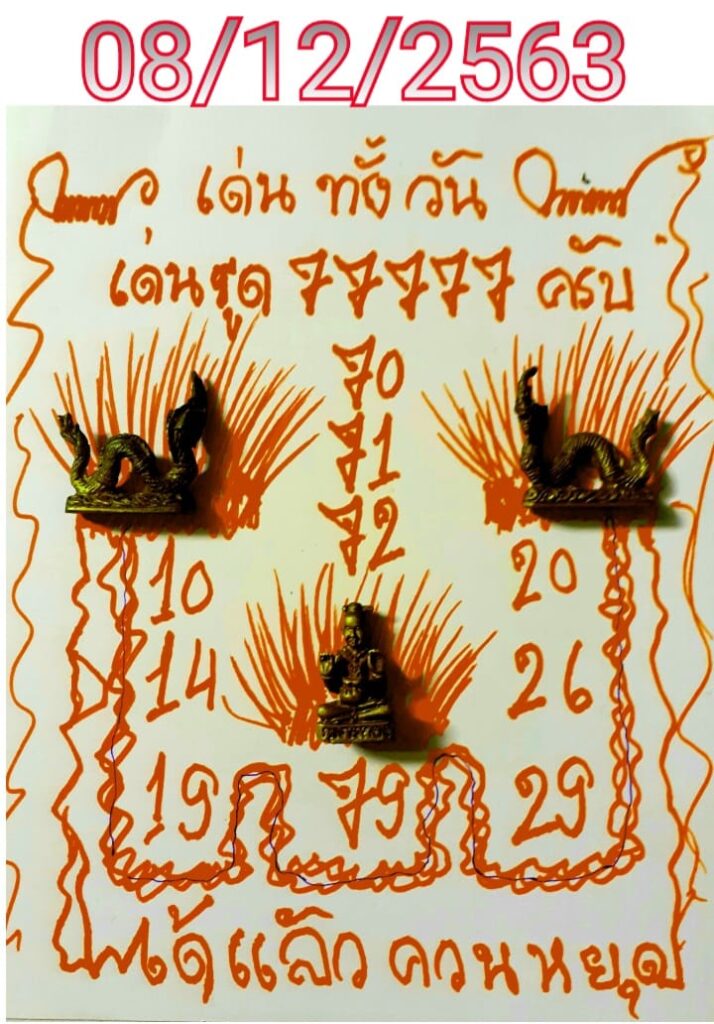 08/12/2563
เด่น ทั้งวัน
เด่นชุด 77777 ครับ
70
71
72
10 20
14 26
19 79 29
ได้แล้ว ควนหยุด